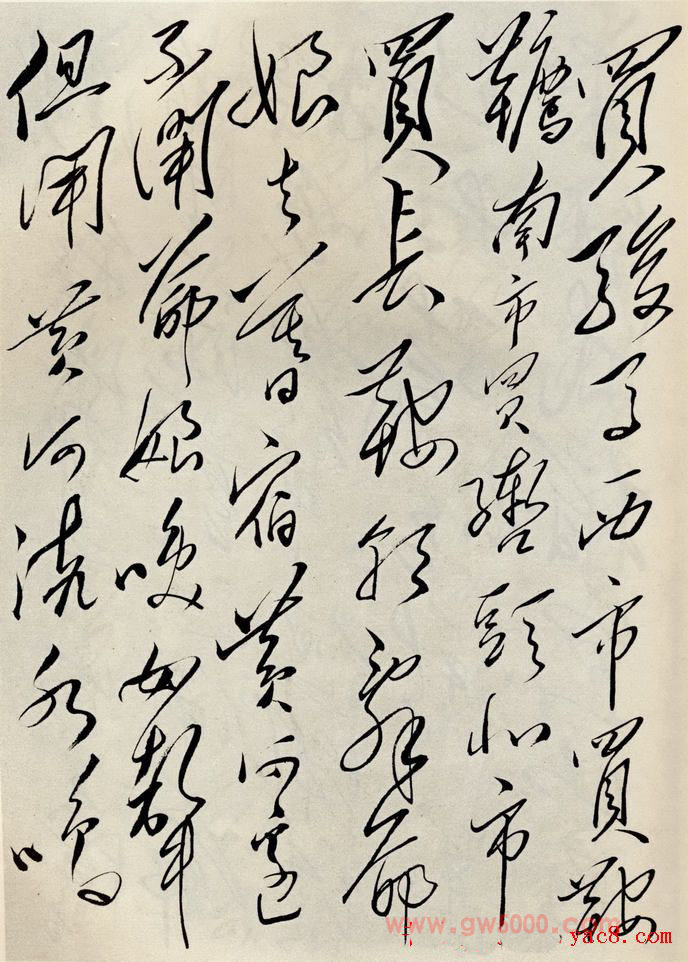 買駿馬西市買鞍
韉南市買轡頭北市
買長鞭朝辭爺
娘去暮宿黃河邊
不聞爺娘喚女聲
但聞黃河流水鳴
www.gw5000.com
yac8.com